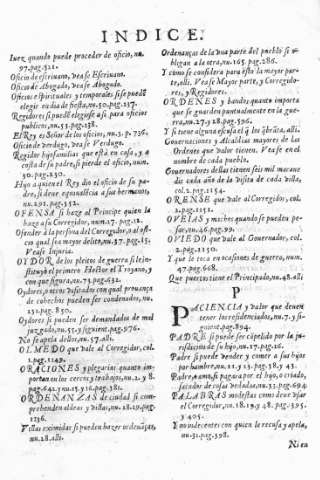 INDICE.
Iuez quando puede proceder de oficio, nu.
97. pag. 521.
Oficio de escriuano, vease Escriuano.
Oficio de Abogado, vease Abogado.
Oficios espirituales y temporales si se puedē
elegir en dia de fiesta, nu. 50. pag. 117.
Regidores si puedē elegirse a si para oficios
publicos, nu. 53. pag. 158.
El Rey es Señor de los oficios, nu. 3. p. 726.
Oficio de verdugo, vease Verdugo.
Regidor hijo familias que està en casa, y a
costa de su padre, si pierde el oficio, num.
30. pag. 250.
Hijo a quien el Rey dio el oficio de su padre,
si deue equiualēcia a sus hermanos,
nu. 291. pag. 252.
OFENSA si haze al Principe quien la
haze a su Corregidor, num. 27. pag. 13.
Ofender à la persona del Corregidor, o al oficio
qual sea mayor delito, nu. 37. pag. 15.
Vease Injuria.
OYDOR de los pleitos de guerra si le instituyò
el primero Hector el Troyano, y
con que figura, nu. 73. pag. 652.
Oydores, o otros Iuezes con qual prouança
de cohechos pueden ser condenados, nu.
132. pag. 850.
Oydores si pueden ser demandados de mal
juzgado, nu. 55. y siguient. pag. 976.
No se apela dellos, nu. 57. alli.
OLMEDO que vale al Corregidor, col.
1. pag. 1149.
ORACIONES y plegarias quanto importan
en los cercos y trabajos, nu. 2. y 8.
pag. 642. y nu. 15. y 16. pag. 381.
ORDENANZAS de ciudad si comprehenden
aldeas y villas, nu. 18. 19. pag.
1236.
Villas eximidas si pueden hazer ordenāças,
nu. 28. alli.
Ordenanzas de la vna parte del pueblo si obligan
a la otra, nu. 165. pag. 286.
Y como se considera para esto la mayor parte,
alli. Vease Mayor parte, y Corregidores,
y Regidores.
ORDENES y bandos quanto importa
que se guarden puntualmente en la guerra,
nu. 27. y 28. pag. 596.
Y si tiene alguna escusa el q̄ los q̄brāta, alli.
Gouernaciones y Alcaldias mayores de las
Ordenes que valor tienen. Vease en el
nombre de cada pueblo.
Gouernadores dellas tienen seis mil marauedis
cada año de la visita de cada villa,
col. 2. pag. 1154.
ORENSE que vale al Corregidor, col.
2. pag. 1151.
OVEJAS y machos quando se pueden pesar,
nu. 46. pag. 99.
OVIEDO que vale al Gouernador, col.
2. pag. 1150.
Y que le toca en ocasiones de guerra, num.
47. pag. 668.
Que puertos tiene el Principado, nu. 48. alli
P
PACIENCIA y valor que deuen
tener los residenciados, nu. 7. y siguient.
pag. 894.
PADRE si puede ser cōpelido por la justicia
a dotar su hijo, nu. 17. pag. 16.
Padre si puede vender y comer a sus hijos
por hambre, nu. 11. y 13. pag. 38. y 43.
Padre, o amo, si pagara por el hijo, o criado,
sacador de cosas vedadas, nu. 33. pag. 694
PALABRAS modestas como deue vsar
el Corregidor, nu. 18. 19. y 48. pag. 395.
y 405.
Y no indecentes con quien le recusa y apela,
nu. 31. pag. 398.
Ni en